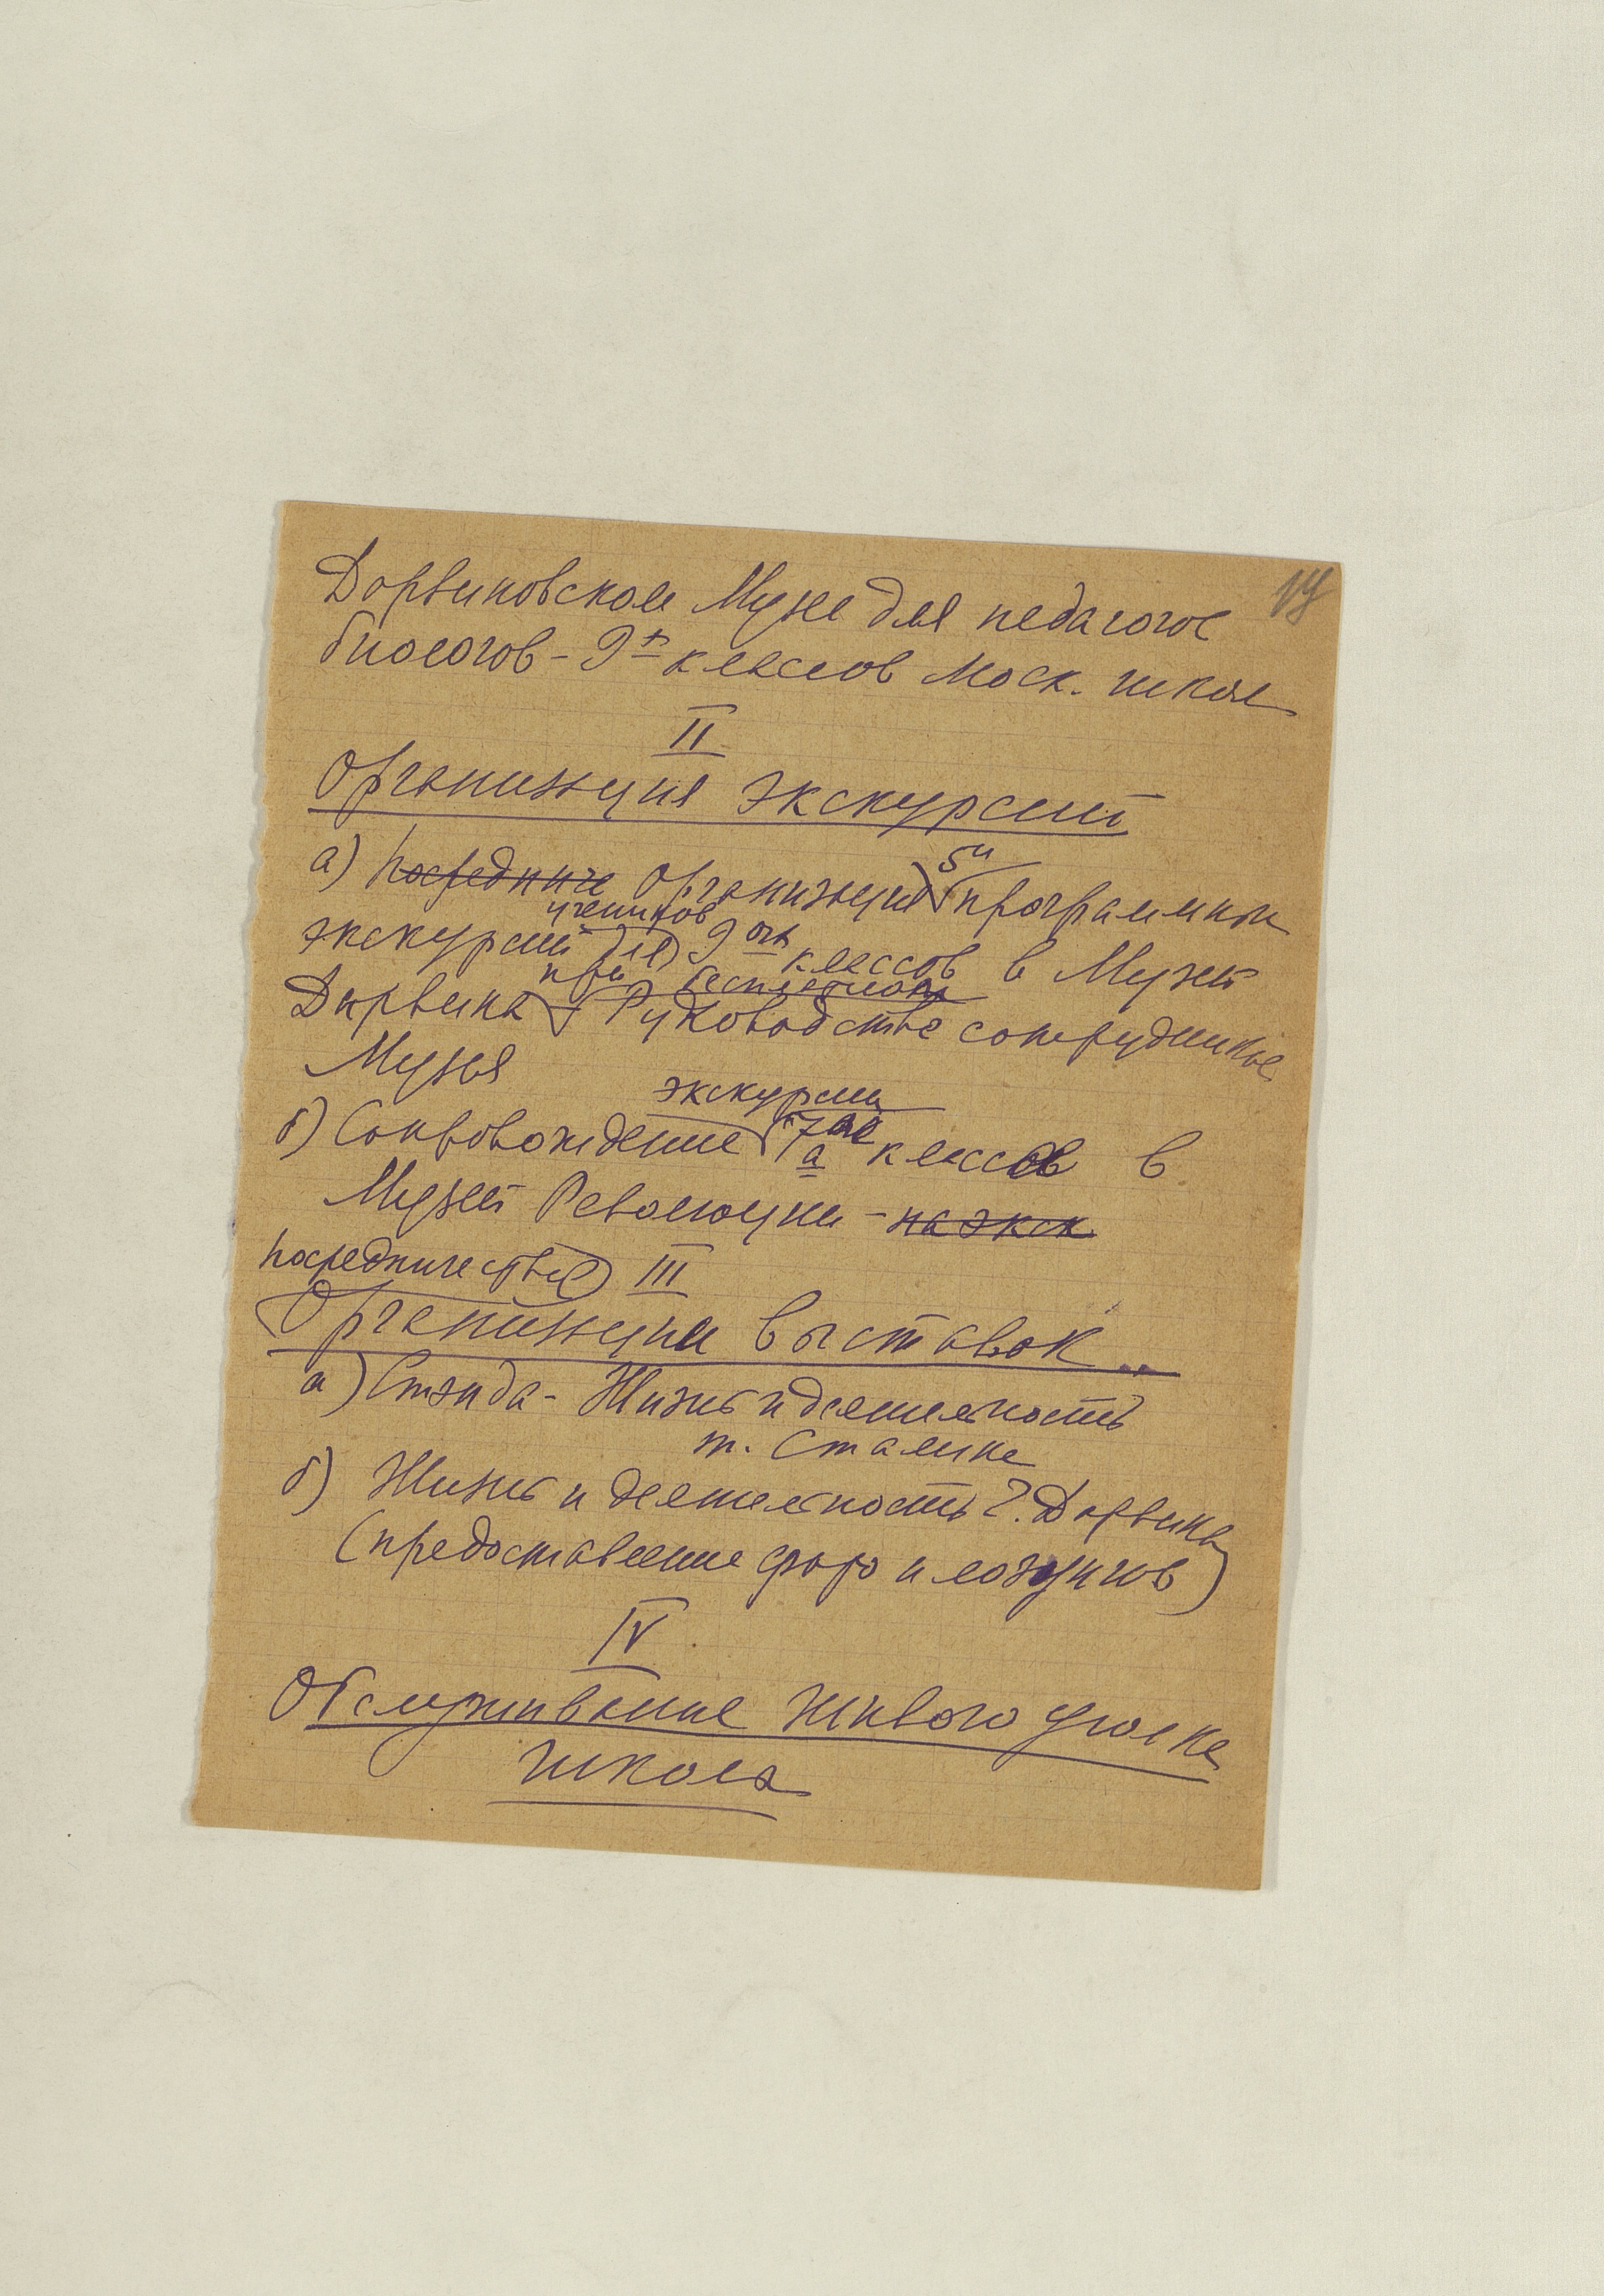 14
Дарвиновском Музее для педагогов
биологов - 9х классов Моск. школ
II
Организация экскурсий
а) Посредниче Организация 5и программн
учеников
экскурсий для 9ых классов в Музей
при бесплатном
Дарвина Руководстве сотрудников
Музея
экскурсии
б) Сопровождение 7 а классов в
Музей Революции - на экск
посредничество III
Организации выставок
а) Стэнда - Жизнь и деятельность
т. Сталина
б) Жизнь и деятельность Ч. Дарвина
(предоставление фото и лозунгов)
IV
Обслуживание живого уголка
школы